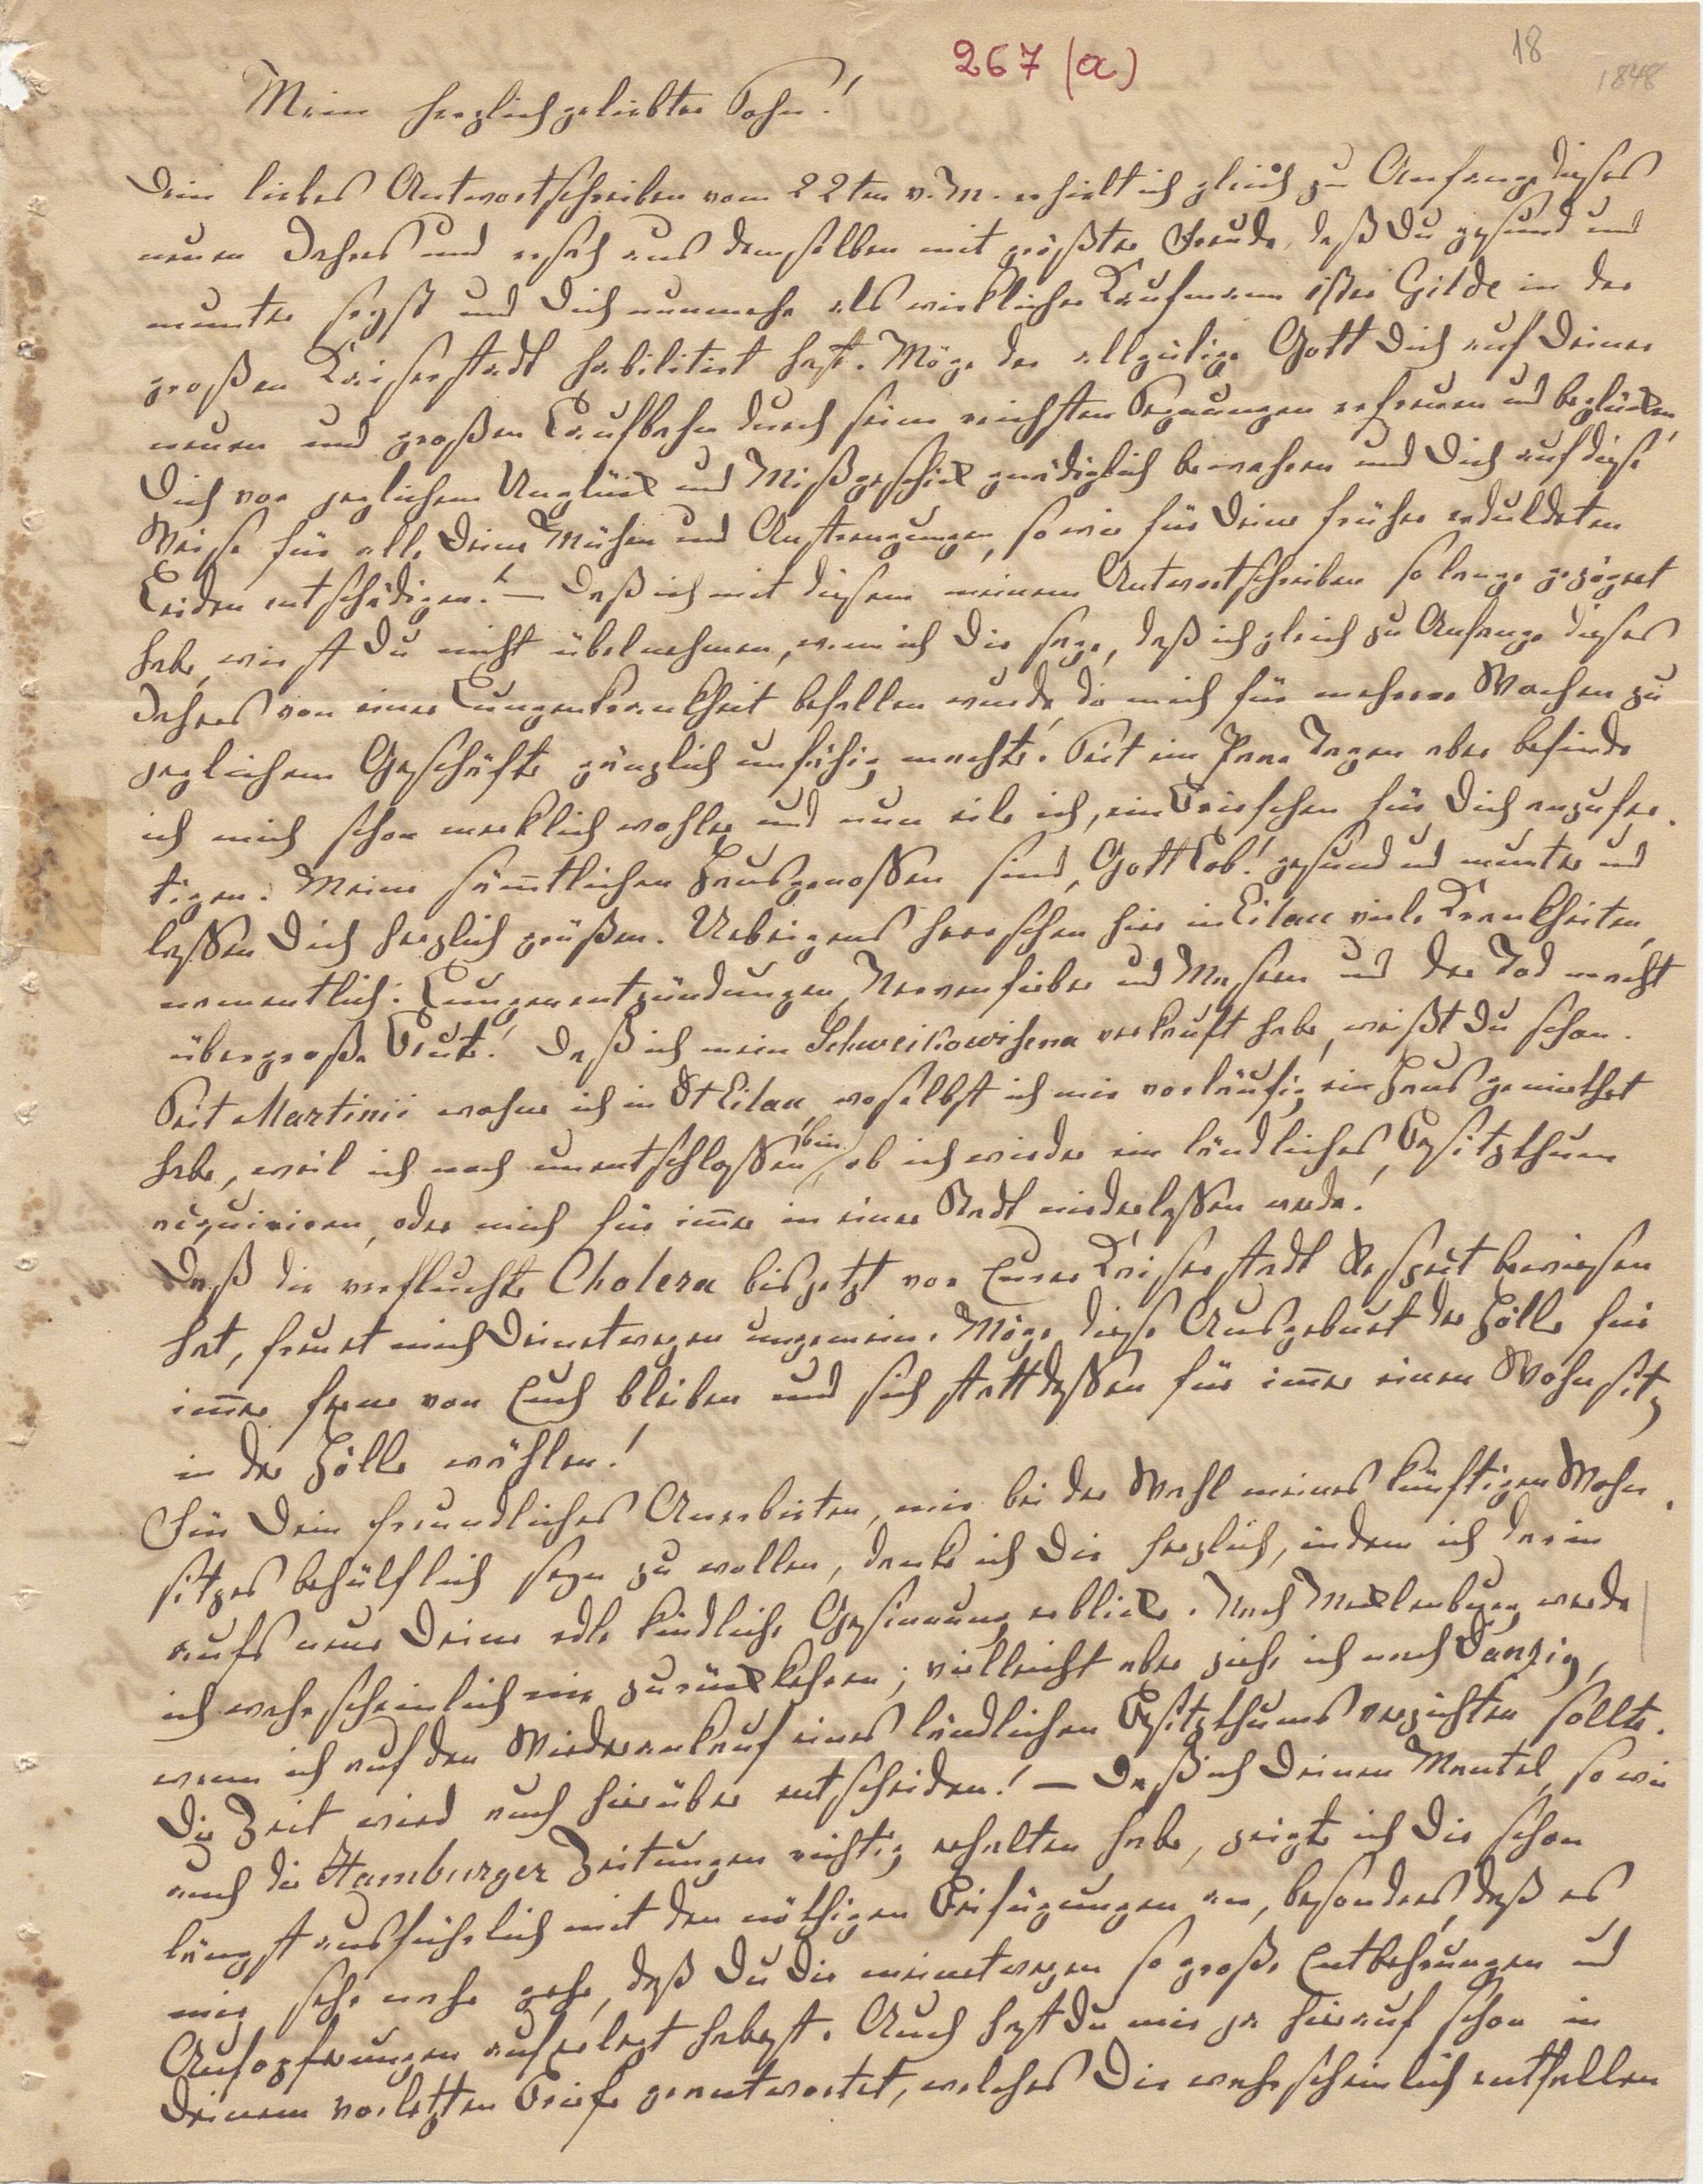 267 (a)
18
1848
Mein herzlich geliebter Sohn!
Dein liebes Antwortschreiben vom 22ten v. M. erhielt ich gleich zu Anfange dieses
neuen Jahres und ersah aus demselben mit größter Freude, daß Du gesund und
munter seyst und Dich nunmehr als wirklicher Kaufmann 1ster Gilde in der
großen Kaiserstadt habilitirt hast. Möge der allgütige Gott Dich auf Deiner
neuen und großen Laufbahn durch seine reichsten Segnungen erfreuen und beglücken,
Dich vor jeglichem Unglück und Mißgeschick gnädiglich bewahren und Dich auf diese
Weise für alle Deine Mühen und Anstrengungen, so wie für Deine früher erduldeten
Leiden entschädigen! — Daß ich mit diesem meinem Antwortschreiben so lange gezögert
habe, wirst Du nicht übelnehmen, wenn ich Dir sage, daß ich gleich zu Anfange dieses
Jahres von einer Lungenkrankheit befallen wurde, die mich für mehrere Wochen zu
jeglichem Geschäfte gänzlich unfähig machte. Seit ein Paar Tagen aber befinde
ich mich schon merklich wohler und nun eile ich, ein Briefchen für Dich anzufer-
tigen. Meine sämtlichen Hausgenossen sind, Gott Lob! gesund und munter und
lassen Dich herzlich grüßen. Uebrigens herrschen hier in Eilau viele Krankheiten,
namentlich: Lungenentzündungen, Nervenfieber und Masern und der Tod macht
übergroße Beute! Daß ich mein Schweikowihena verkauft habe, weißt Du schon.
Seit Martinii wohne ich in Dt Eilau, woselbst ich mir vorläufig ein Haus gemiethet
habe, weil ich noch unentschlossen bin, ob ich wieder ein ländliches Besitzthum
acquiriren, oder mich für immer in einer Stadt niederlassen werde!
Daß die verfluchte Cholera bis jetzt vor Eurer Kaiserstadt Respect bewiesen
hat, freuet mich Deinetwegen ungemein. Möge diese Ausgeburt der Hölle für
immer ferne von Euch bleiben und sich stattdessen für immer einen Wohnsitz
in der Hölle wählen!
Für Dein freundliches Anerbieten, mir bei der Wahl meines künftigen Wohn-
sitzes behülflich seyn zu wollen, danke ich Dir herzlich, indem ich darin
aufs neue Deine edle kindliche Gesinnung erblicke. Nach Mecklenburg werde
ich wahrscheinlich nie zurückkehren; vielleicht aber ziehe ich nach Danzig,
wenn ich auf den Wiederankauf eines ländlichen Besitzthums verzichten sollte.
Die Zeit wird auch hierüber entscheiden! — Daß ich Deinen Mantel, so wie
auch die Hamburger Zeitungen richtig erhalten habe, zeigte ich Dir schon
längst ausführlich mit den nöthigen Beifügungen an, besonders, daß es
mir sehr nahe gehe, daß Du Dir meinetwegen so große Entbehrungen und
Aufopferungen auferlegt habest. Auch hast Du mir ja hierauf schon in
Deinem vorletzten Briefe geantwortet, welches Dir wahrscheinlich entfallen